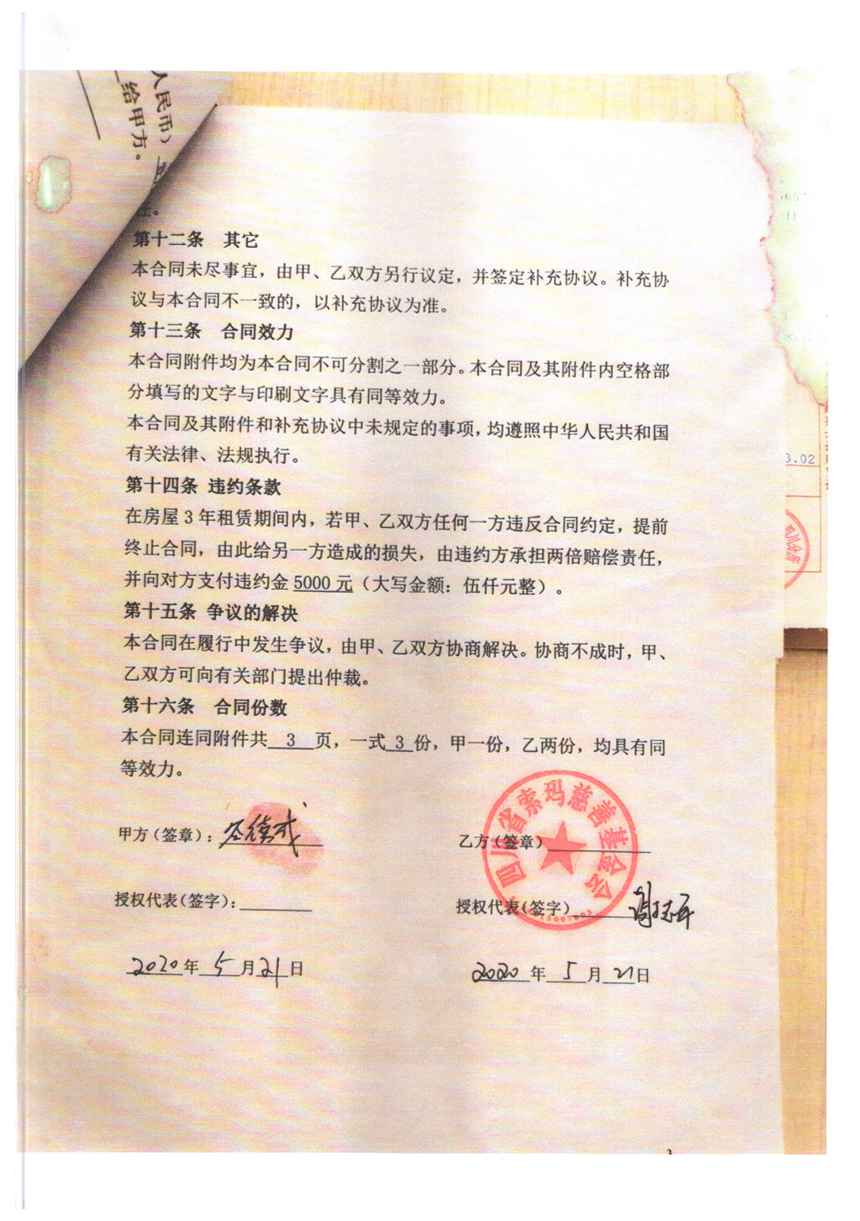 人民币）
给甲方。
第十二条 其它
本合同未尽事宜，由甲、乙双方另行议定，并签定补充协议。补充协
议与本合同不一致的，以补充协议为准。
第十三条 合同效力
本合同附件均为本合同不可分割之一部分。本合同及其附件内空格部
分填写的文字与印刷文字具有同等效力。
本合同及其附件和补充协议中未规定的事项，均遵照中华人民共和国
有关法律、法规执行。
第十四条 违约条款
在房屋 3 年租赁期间内，若甲、乙双方任何一方违反合同约定，提前
终止合同，由此给另一方造成的损失，由违约方承担两倍赔偿责任，
并向对方支付违约金 5000 元（大写金额：伍仟元整）。
第十五条 争议的解决
本合同在履行中发生争议，由甲、乙双方协商解决。协商不成时，甲、
乙双方可向有关部门提出仲裁。
第十六条 合同份数
本合同连同附件共 3 页，一式 3 份，甲一份，乙两份，均具有同
等效力。
甲方（签章）：
乙方（签章）
四川省索玛慈善基金会
授权代表（签字）：
授权代表（签字）
2020 年 5 月 21 日
2020 年 5 月 21 日
3.02
3